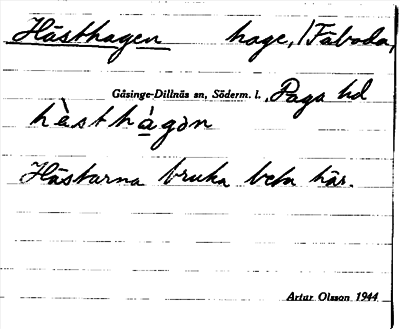 Hästhagen hage, /Faboda/
Gåsinge-Dillnäs sn, Söderm. l. Daga hd
hàsthàgən
Hästarna bruka beta här.
Artur Olsson 1944